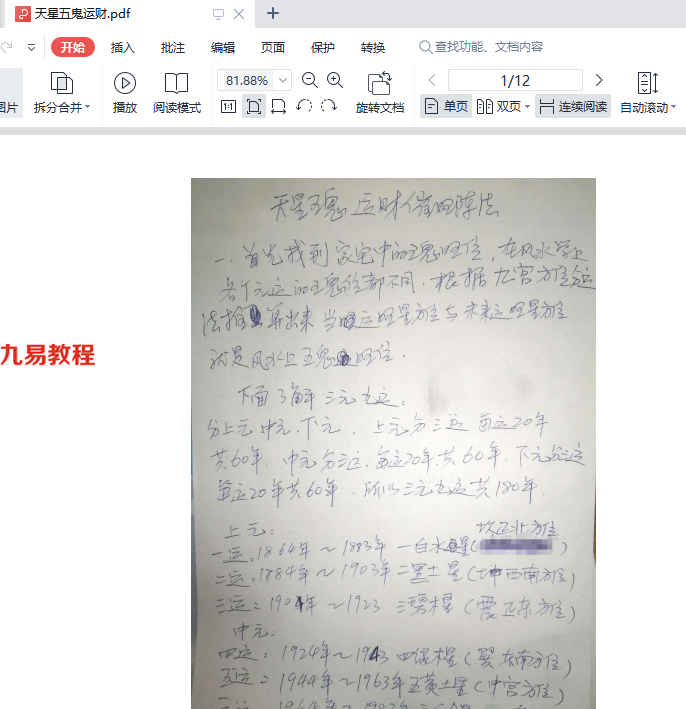 天星五鬼运财.pdf
开始 插入 批注 编辑 页面 保护 转换 查找功能、文档内容
图片 拆分合并 播放 阅读模式 81.88% 1:1 旋转文档 1/12 单页 双页 连续阅读 自动滚动
天星五鬼运财催旺阵法
一.首先找到家宅中的五鬼旺位,在风水学上
各个元运的五鬼位都不同.根据九宫方位
法推算出来当运旺星方位与未来运旺星方位
就是风水上五鬼旺位.
九易教程
下面了解三元九运。
分上元.中元.下元. 上元分三运 每运20年
共60年. 中元分三运.每运20年.共60年.下元分三运
每运20年共60年.所以三元九运共180年.
上元: 坎正北方位
一运.1864年~1883年 一白水星( )
二运.1884年~1903年 二黑土星(坤西南方位)
三运:1904年~1923 三碧木星(震正东方位)
中元:
四运:1924年~1943 四绿木星(巽东南方位)
五运:1944年~1963年五黄土星(中宫方位)